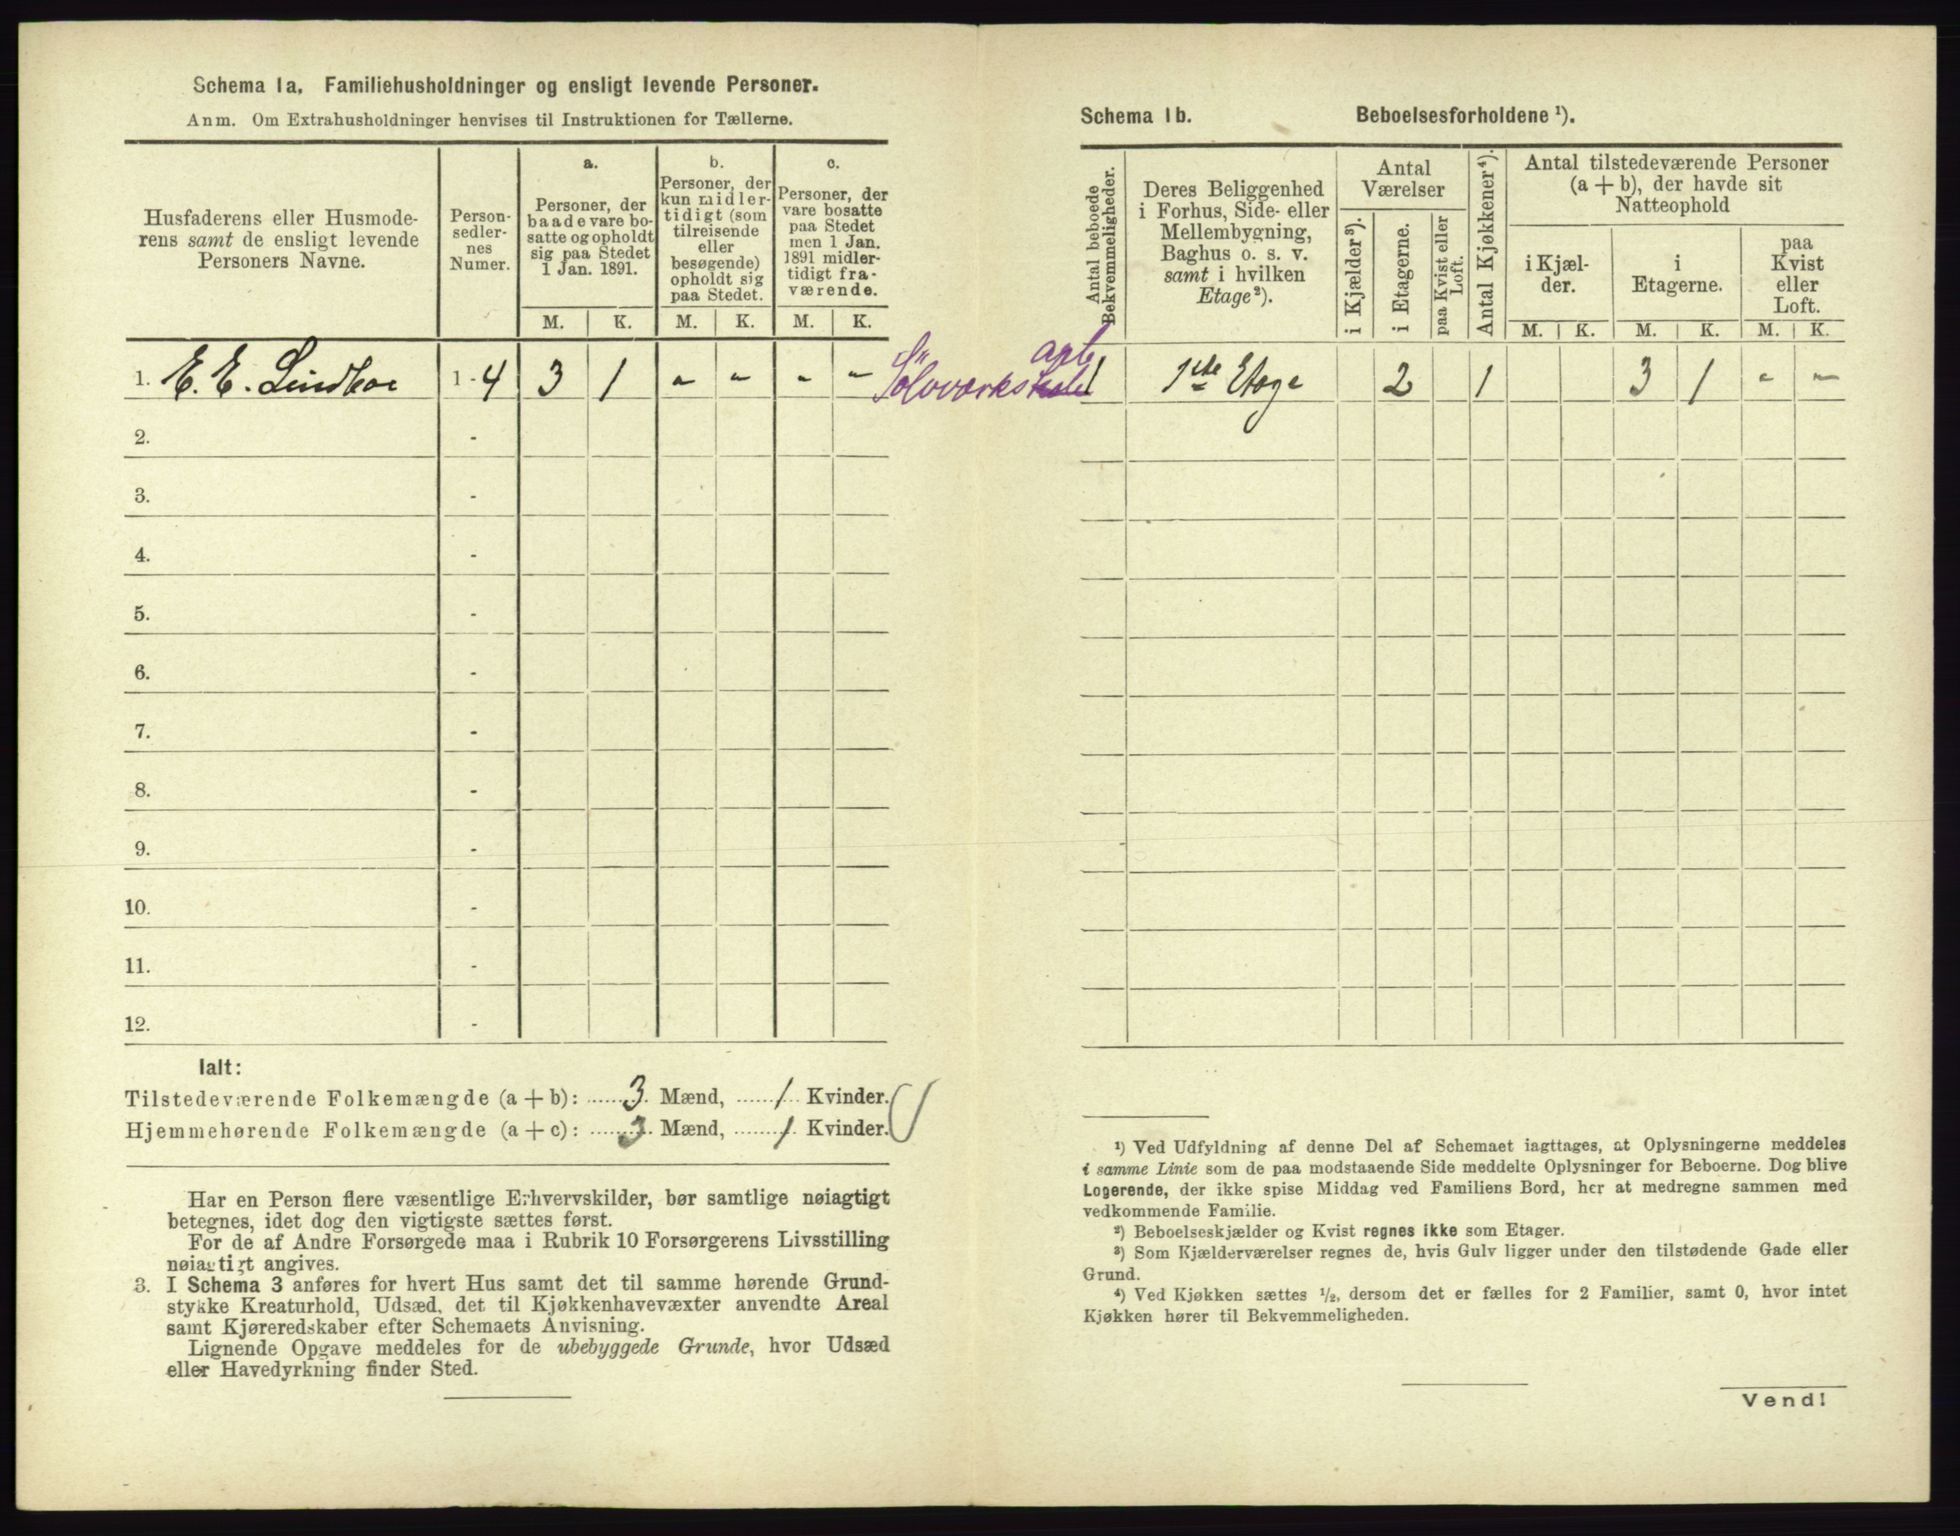 Schema 1a. Familiehusholdninger og ensligt levende Personer.
Anm. Om Extrahusholdninger henvises til Instruktionen for Tællerne.
Husfaderens eller Husmode-
rens samt de ensligt levende
Personers Navne.
Person-
sedler-
nes
Numer.
a.
Personer, der
baade vare bo-
satte og opholdt
sig paa Stedet
1 Jan. 1891.
b.
Personer, der
kun midler-
tidigt (som
tilreisende
eller
besøgende)
opholdt sig
paa Stedet.
c.
Personer, der
vare bosatte
paa Stedet
men 1 Jan.
1891 midler-
tidigt fra-
værende.
M. K. M. K. M. K.
1. E. E. 1 - 4 3 1 - - - -
2. -
3. -
4. -
5. -
6. -
7. -
8. -
9. -
10. -
11. -
12. -
Ialt:
Tilstedeværende Folkemængde (a + b): 3 Mænd, 1 Kvinder.
Hjemmehørende Folkemængde (a + c): 3 Mænd, 1 Kvinder.
Har en Person flere væsentlige Erhvervskilder, bør samtlige nøiagtigt
betegnes, idet dog den vigtigste sættes først.
For de af Andre Forsørgede maa i Rubrik 10 Forsørgerens Livsstilling
nøiagtigt angives.
3. I Schema 3 anføres for hvert Hus samt det til samme hørende Grund-
stykke Kreaturhold, Udsæd, det til Kjøkkenhavevæxter anvendte Areal
samt Kjøreredskaber efter Schemaets Anvisning.
Lignende Opgave meddeles for de ubebyggede Grunde, hvor Udsæd
eller Havedyrkning finder Sted.
Schema 1b. Beboelsesforholdene ¹).
Antal beboede
Bekvemmeligheder.
Deres Beliggenhed
i Forhus, Side- eller
Mellembygning,
Baghus o. s. v.
samt i hvilken
Etage²).
Antal
Værelser
i Kjælder³).
i Etagerne.
paa Kvist eller
Loft.
Antal Kjøkkener⁴).
Antal tilstedeværende Personer
(a + b), der havde sit
Natteophold
i Kjæl-
der.
i
Etagerne.
paa
Kvist
eller
Loft.
M. K. M. K. M. K.
1 1ste Etage 2 1 3 1 - -
¹) Ved Udfyldning af denne Del af Schemaet iagttages, at Oplysningerne meddeles
i samme Linie som de paa modstaaende Side meddelte Oplysninger for Beboerne. Dog blive
Logerende, der ikke spise Middag ved Familiens Bord, her at medregne sammen med
vedkommende Familie.
²) Beboelseskjælder og Kvist regnes ikke som Etager.
³) Som Kjælderværelser regnes de, hvis Gulv ligger under den tilstødende Gade eller
Grund.
⁴) Ved Kjøkken sættes ½, dersom det er fælles for 2 Familier, samt 0, hvor intet
Kjøkken hører til Bekvemmeligheden.
Vend!